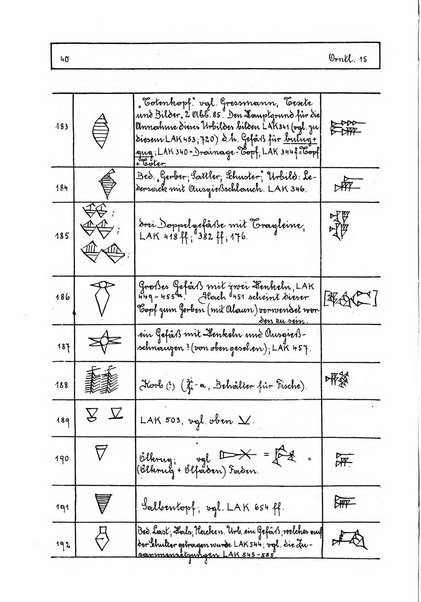 40
Orntl. 15
183
„Totenkopf“. vgl. Gressmann, Texte
und Bilder, 2 Abb. 85. Den Hauptgrund für die
Annahme dieses Urbildes bilden LAK 341 (vgl. zu
diesem LAK 453, 720) d.h. Gefäß für bulug+
gug; LAK 340 + Drainage-Topf, LAK 344 f. Topf
+ Töter.
184
Bed. „Gerber, Sattler, Schuster.“ Urbild: Le-
dersack mit Ausgießschlauch. LAK 346.
185
drei Doppelgefäße mit Tragleine,
LAK 418 ff; 382 ff, 176.
186
Großes Gefäß mit zwei Henkeln, LAK
449-455a. Nach 451 scheint dieser
Topf zum Gerben (mit Alaun) verwendet wor-
den zu sein.
187
ein Gefäß mit Henkeln und Ausgieß-
schnauzen? (von oben gesehen); LAK 457.
188
Korb (?) (-a, Behälter für Fische).
189
LAK 503, vgl. oben
190
Ölkrug; vgl. = =
(Ölkrug + Ölfaden) Faden.
191
Salbentopf, vgl. LAK 654 ff.
192
Bed. Last; Hals, Nacken. Urb. ein Gefäß, welches auf
der Schulter getragen wurde LAK 544, vgl. die Zu-
sammensetzungen LAK 545-588.